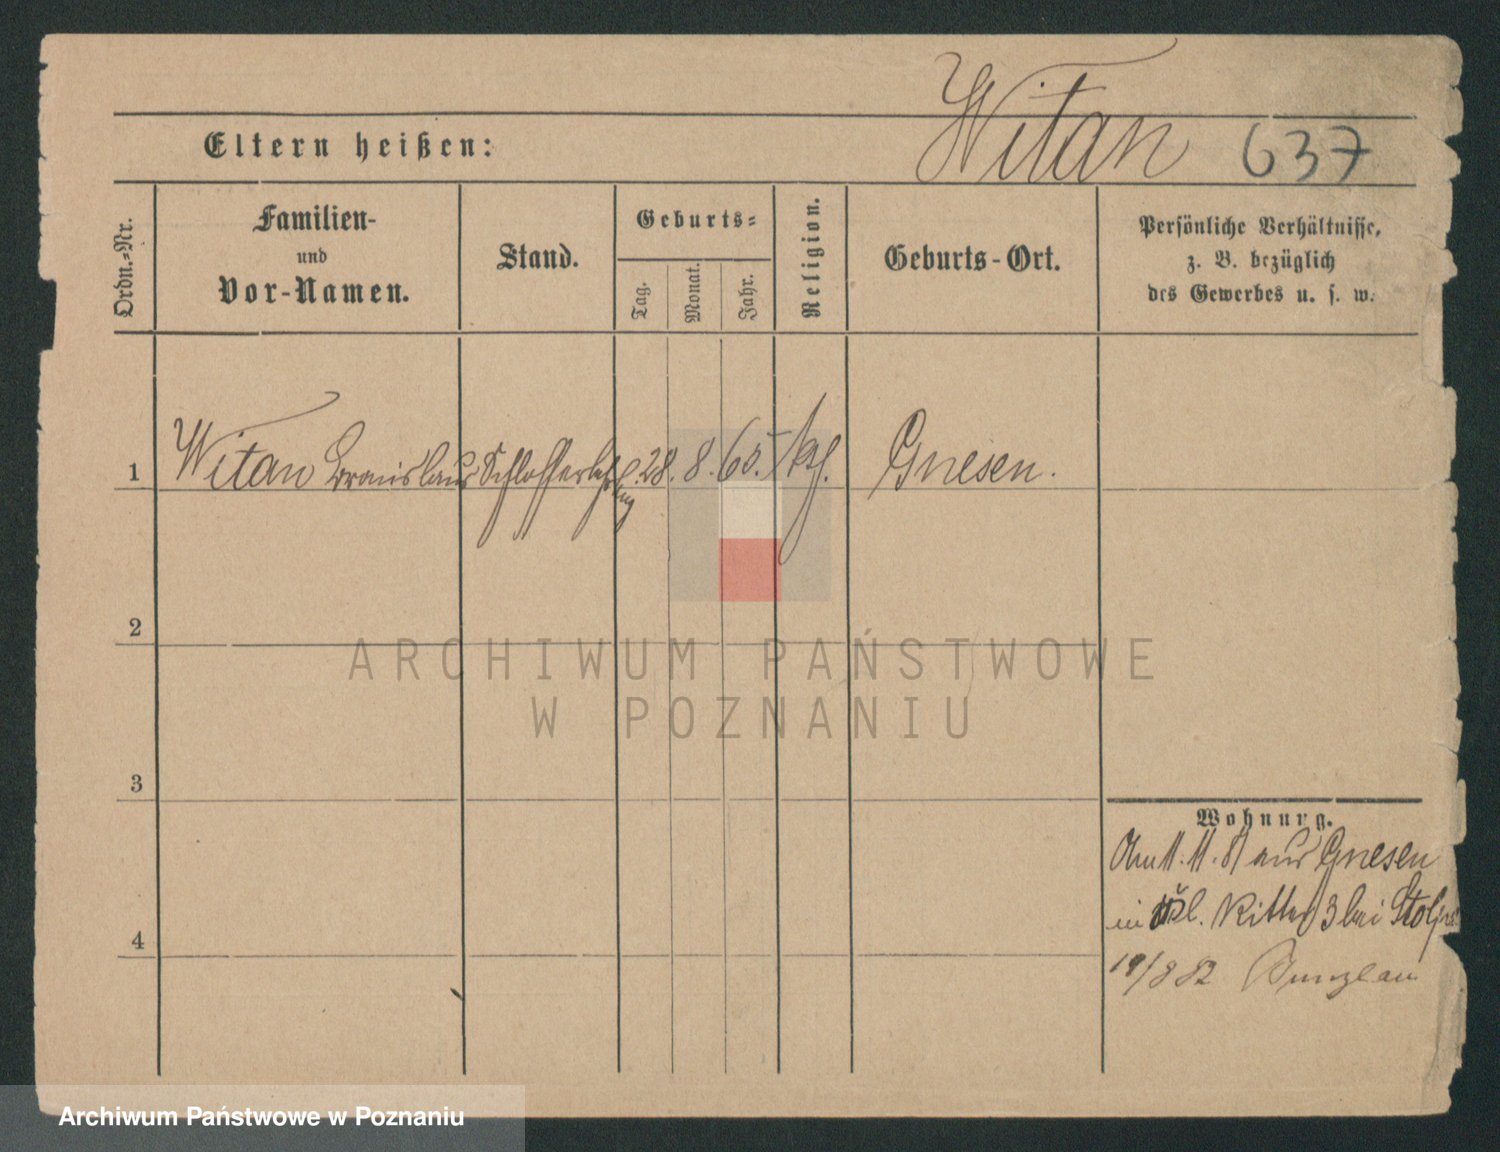 Witan 637
Eltern heißen:
Ordn.-Nr.
Familien-
und
Vor-Namen.
Stand.
Geburts-
Tag.
Monat.
Jahr.
Religion.
Geburts-Ort.
Persönliche Verhältnisse,
z. B. bezüglich
des Gewerbes u. s. w.
1 Witan Bronislaus Schlosserlehrling 28. 8. 65. kath. Gnesen.
2
ARCHIWUM PAŃSTWOWE
W POZNANIU
3
Wohnung.
11. 81 aus Gnesen
in kl. Ritter 3 bei
4
19/8 82 Bunzlau
Archiwum Państwowe w Poznaniu